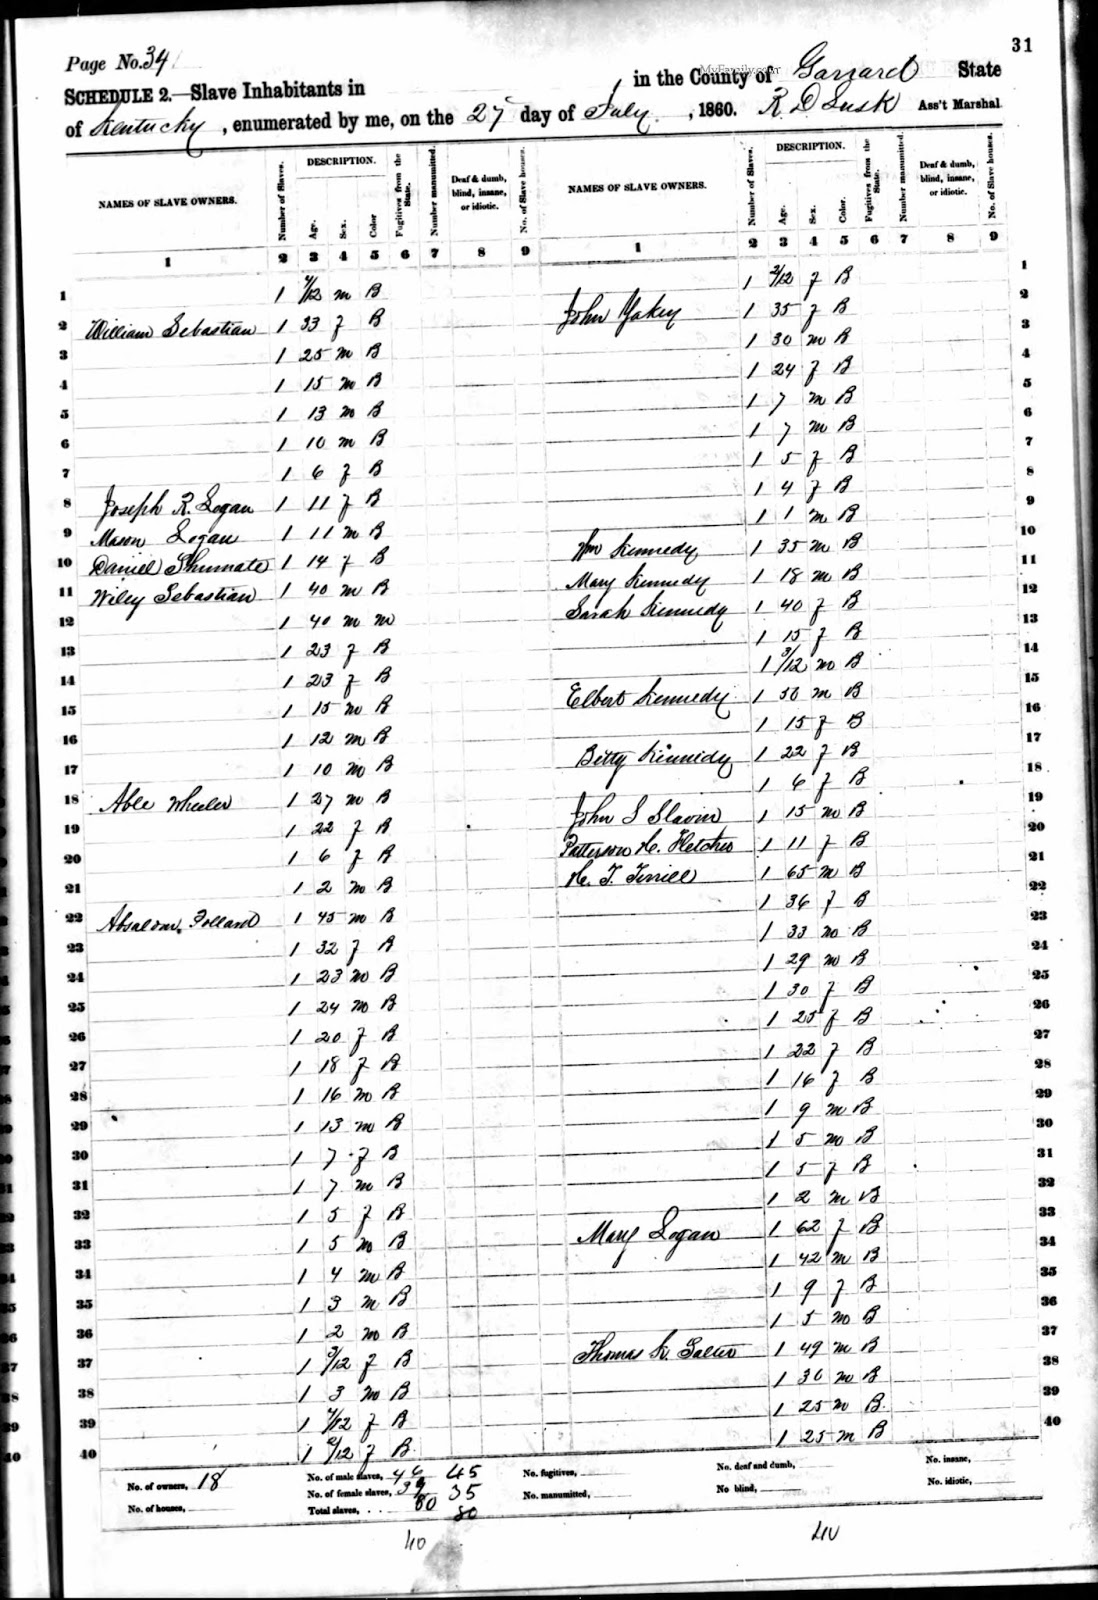 31
Page No. 34
MyFamily.com
SCHEDULE 2.—Slave Inhabitants in in the County of Garrard State
of Kentucky, enumerated by me, on the 27 day of July, 1860. R D Lusk Ass't Marshal
NAMES OF SLAVE OWNERS. Number of Slaves. DESCRIPTION. Age. Sex. Color Fugitives from the State. Number manumitted. Deaf & dumb, blind, insane, or idiotic. No. of Slave houses.
1 2 3 4 5 6 7 8 9
1 1 /12 m B
2 William Sebastian 1 33 f B
3 1 25 m B
4 1 15 m B
5 1 13 m B
6 1 10 m B
7 1 6 f B
8 Joseph R. Logan 1 11 f B
9 Mason Logan 1 11 m B
10 Daniel Shumate 1 14 f B
11 Wiley Sebastian 1 40 m B
12 1 40 m m
13 1 23 f B
14 1 23 f B
15 1 15 m B
16 1 12 m B
17 1 10 m B
18 Able Wheeler 1 27 m B
19 1 22 f B
20 1 6 f B
21 1 2 m B
22 Absalom 1 45 m B
23 1 32 f B
24 1 23 m B
25 1 24 m B
26 1 20 f B
27 1 18 f B
28 1 16 m B
29 1 13 m B
30 1 7 f B
31 1 7 m B
32 1 5 f B
33 1 5 m B
34 1 4 m B
35 1 3 m B
36 1 2 m B
37 1 /12 f B
38 1 3 m B
39 1 /12 f B
40 1 /12 f B
NAMES OF SLAVE OWNERS. Number of Slaves. DESCRIPTION. Age. Sex. Color. Fugitives from the State. Number manumitted. Deaf & dumb, blind, insane, or idiotic. No. of Slave houses.
1 2 3 4 5 6 7 8 9
1 2/12 f B 1
John Yakey 1 35 f B 2
1 30 m B 3
1 24 f B 4
1 7 m B 5
1 7 m B 6
1 5 f B 7
1 4 f B 8
1 1 m B 9
Wm Kennedy 1 35 m B 10
Mary Kennedy 1 18 m B 11
Sarah Kennedy 1 40 f B 12
1 15 f B 13
1 3/12 m B 14
Elbert Kennedy 1 50 m B 15
1 15 f B 16
Betty Kennedy 1 22 f B 17
1 6 f B 18
John S Slavin 1 15 m B 19
Patterson H. Fletcher 1 11 f B 20
H. T. Terrill 1 65 m B 21
1 36 f B 22
1 33 m B 23
1 29 m B 24
1 30 f B 25
1 25 f B 26
1 22 f B 27
1 16 f B 28
1 9 m B 29
1 5 m B 30
1 5 f B 31
1 2 m B 32
Mary Logan 1 62 f B 33
1 42 m B 34
1 9 f B 35
1 5 m B 36
Thomas K. 1 49 m B 37
1 30 m B 38
1 25 m B. 39
1 25 m B 40
No. of owners, 18
No. of houses,
No. of male slaves, 46 45
No. of female slaves, 35
Total slaves, 80 80
No. fugitives,
No. manumitted,
No. deaf and dumb,
No blind,
No. insane,
No. idiotic,
40 40